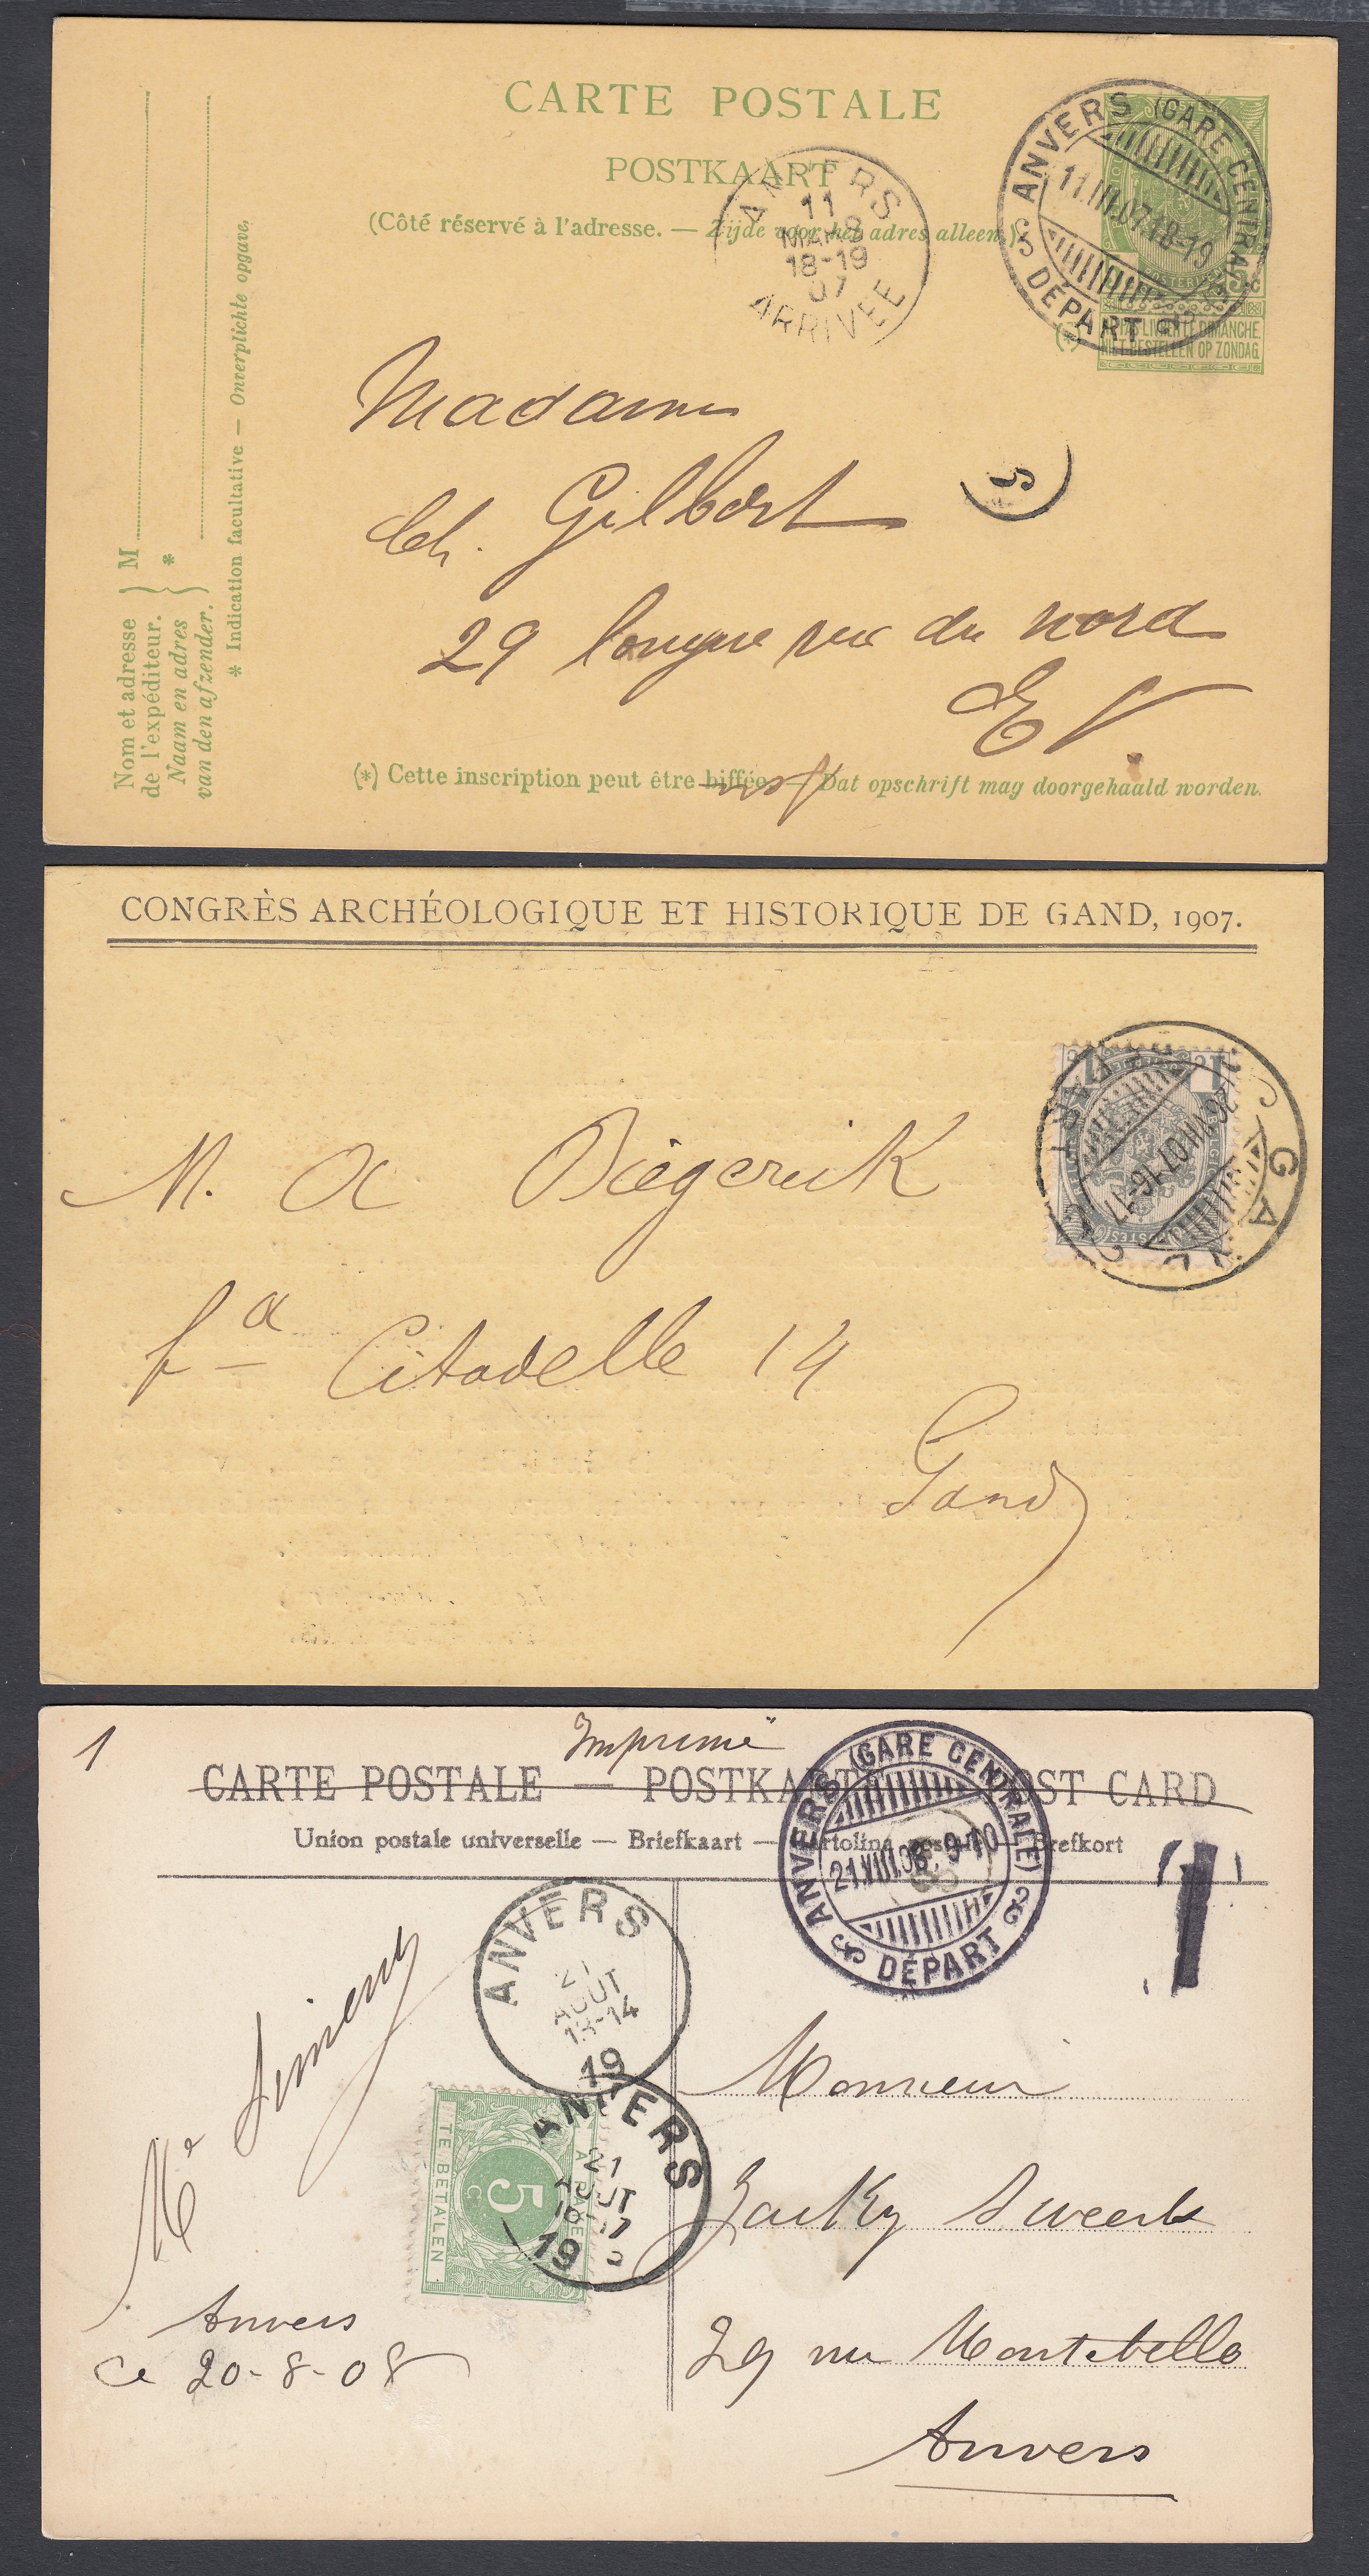 CARTE POSTALE
POSTKAART
(Côté réservé à l'adresse. — Zijde voor het adres alleen.)
ANVERS
11
18-19
07
ARRIVÉE
ANVERS (GARE CENTRALE)
11.III.07.18-19
DÉPART
5 C
NIET BESTELLEN OP ZONDAG.
(*)
Madame
Ch. Gilbert
29 longue rue du nord
E V.
(*) Cette inscription peut être biffée — Dat opschrift mag doorgehaald worden.
Nom et adresse
de l'expéditeur.
Naam en adres
van den afzender.
M
*
* Indication facultative — Onverplichte opgave,
CONGRÈS ARCHÉOLOGIQUE ET HISTORIQUE DE GAND, 1907.
GAND
M. A Diegerick
Citadelle 14
Gand
1
Imprimé
CARTE POSTALE — POSTKARTE — POST CARD
Union postale universelle — Briefkaart — Cartolina postale — Brefkort
ANVERS (GARE CENTRALE)
21.VIII.08. 9-10
DÉPART
ANVERS
21
AOUT
13-14
19
ANVERS
21
AOUT
19
A PAYER
5 C
TE BETALEN
Monsieur
Jacky Sweerts
29 rue Montebello
Anvers
Anvers
Ce 20-8-08